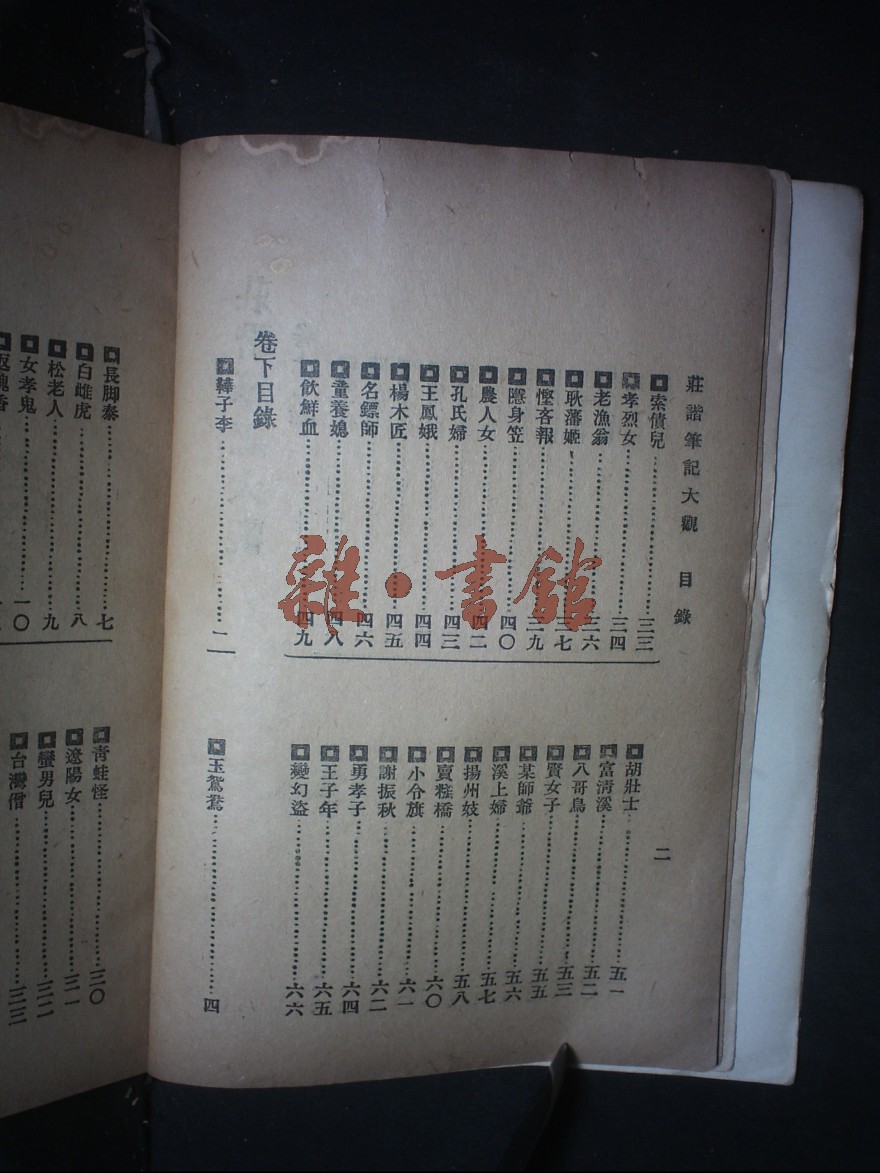 莊諧筆記大觀 目錄
二
索債兒 三三
孝烈女 三四
老漁翁 三六
耿藩姬 三七
慳吝報 三九
隱身笠 四〇
農人女 四二
孔氏婦 四三
王鳳娥 四四
楊木匠 四五
名鏢師 四六
童養媳 四八
飲鮮血 四九
胡壯士 五一
富淸溪 五二
八哥鳥 五三
賢女子 五五
某師爺 五六
溪上婦 五七
揚州妓 五八
賣糕橋 六〇
小令旗 六一
謝振秋 六二
勇孝子 六四
王子年 六五
變幻盜 六六
卷下目錄
鞾子李
玉鴛鴦 四
長脚秦 七
白雌虎 八
松老人 九
女孝鬼 一〇
返魂香
靑蛙怪 三〇
遼陽女 三一
蠻男兒 三二
台灣僧 三三
雜·書館